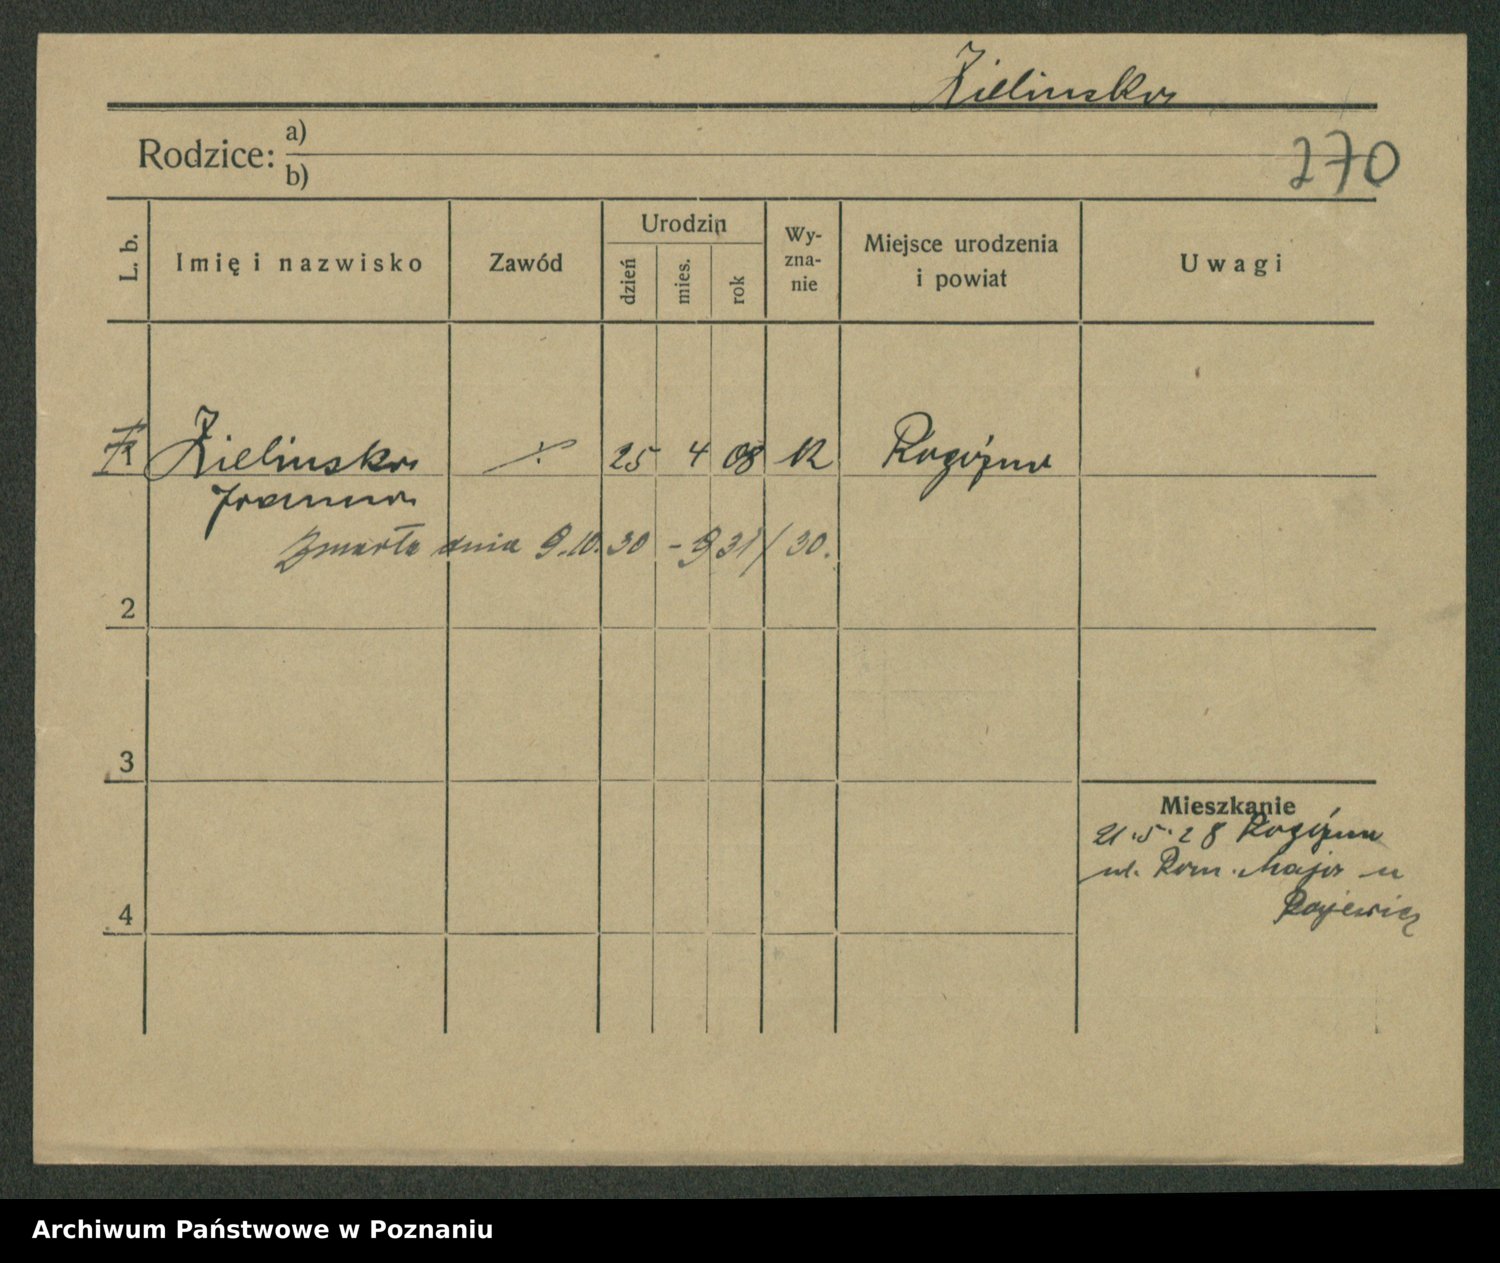 Zielinska
Rodzice: a)
b)
270
L. b.
Imię i nazwisko
Zawód
Urodzin
dzień
mies.
rok
Wy-
zna-
nie
Miejsce urodzenia
i powiat
Uwagi
Zielinska 25 4 08 K Rogóźno
Joanna
Zmarła dnia 9.10.30 - 931/30.
2
3
4
Mieszkanie
21.5.28 Rogóźno
ul. Kom. Maja u
Rajewicz
Archiwum Państwowe w Poznaniu